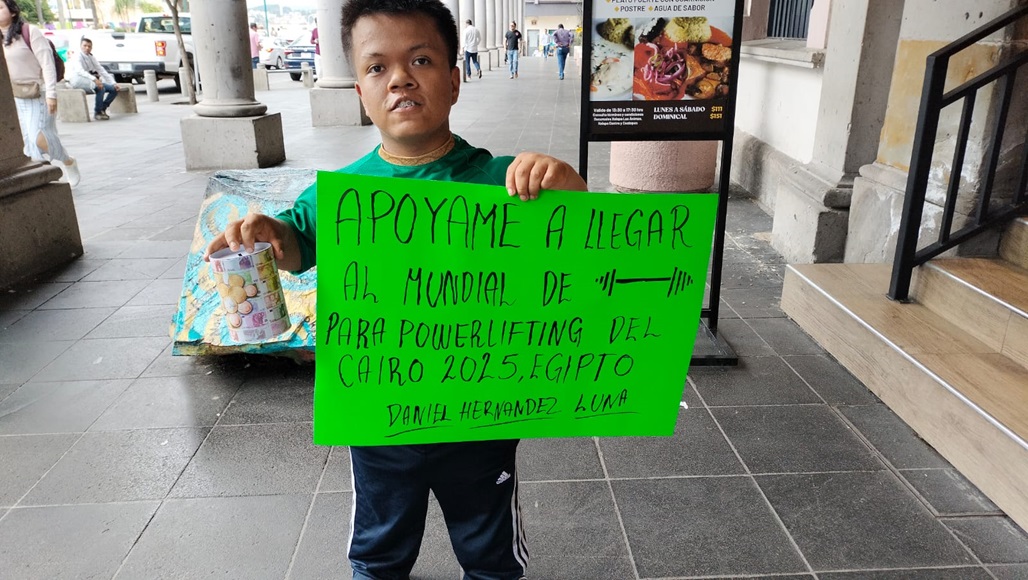 PLATO FUERTE CON GUARNICIÓN
+ POSTRE + AGUA DE SABOR
LUNES A SÁBADO $111
DOMINICAL $151
APOYAME A LLEGAR
AL MUNDIAL DE
PARA POWERLIFTING DEL
CAIRO 2025, EGIPTO
DANIEL HERNANDEZ LUNA
adidas